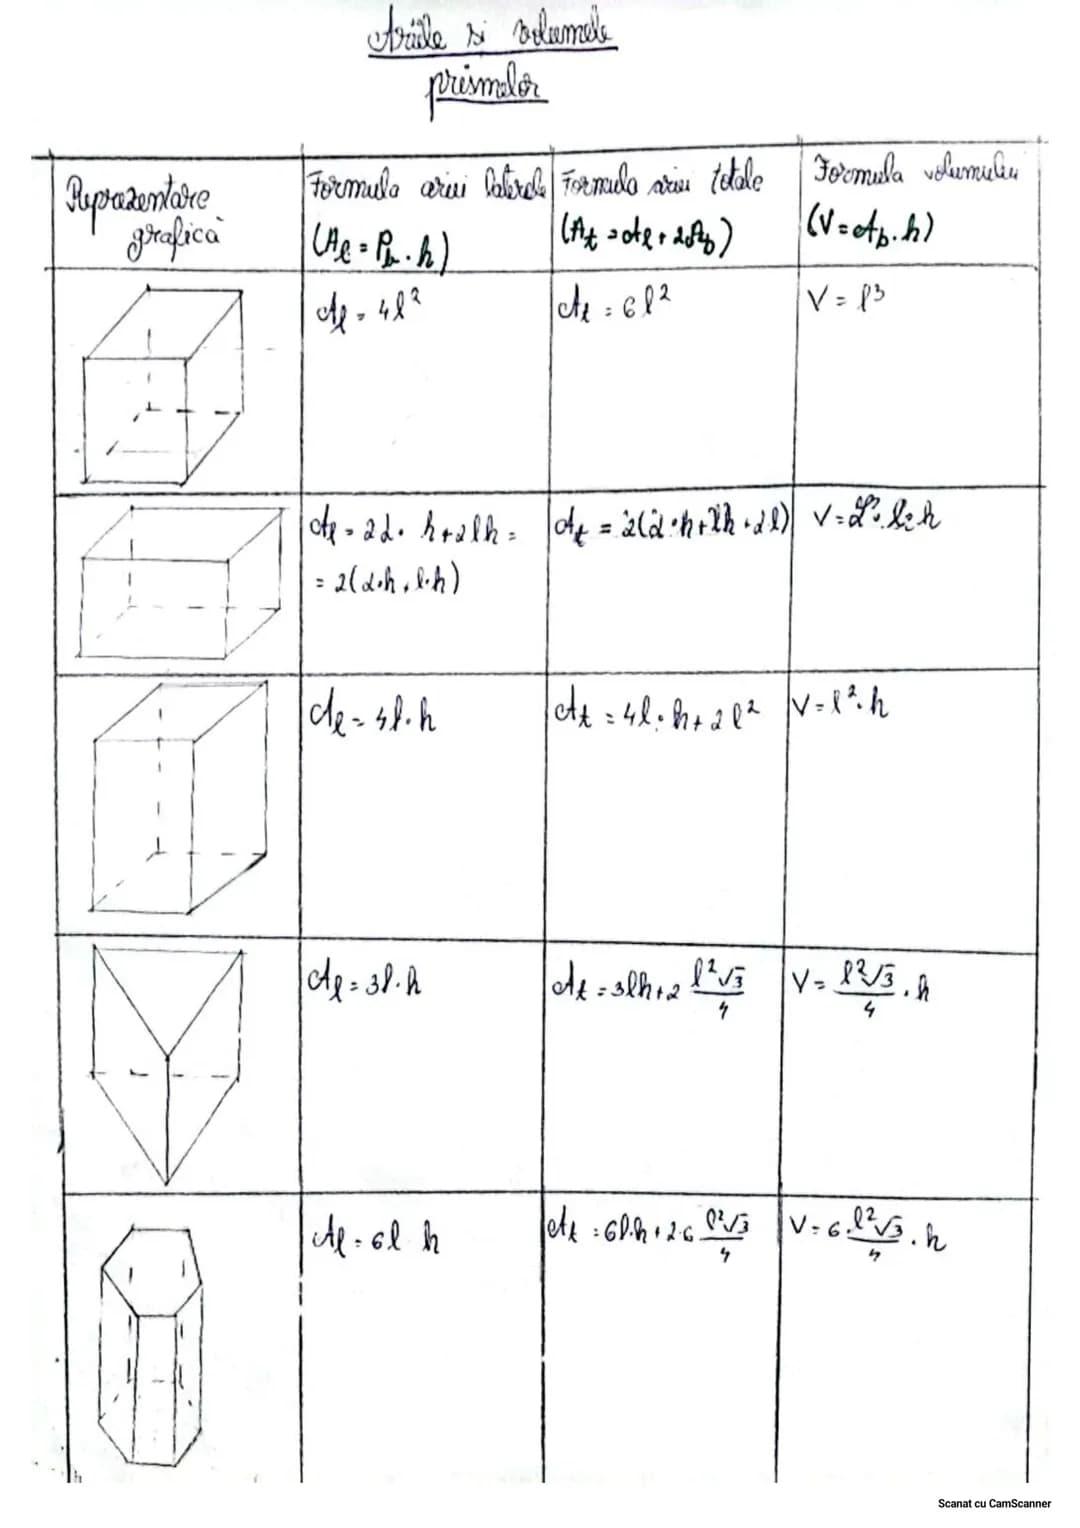 Ariile si volumele
prismelor
Reprezentare
grafică
Formula ariei laterale
(Al = Pb . h)
Formula ariei totale
(At = Al + 2Ab)
Formula volumului
(V = Ab . h)
Al = 4l²
At = 6l²
V = l³
Al = 2L . h + 2lh =
= 2(L.h + l.h)
At = 2(L.h + lh + Ll)
Al = 4l.h
At = 4l.h + 2l²
V = l².h
Al = 3l.h
At = 3lh + 2 l²√3/4
V = l²√3/4 . h
Al = 6l h
At = 6l.h + 2.6 l²√3/4
V = 6 l²√3/4 . h
Scanat cu CamScanner